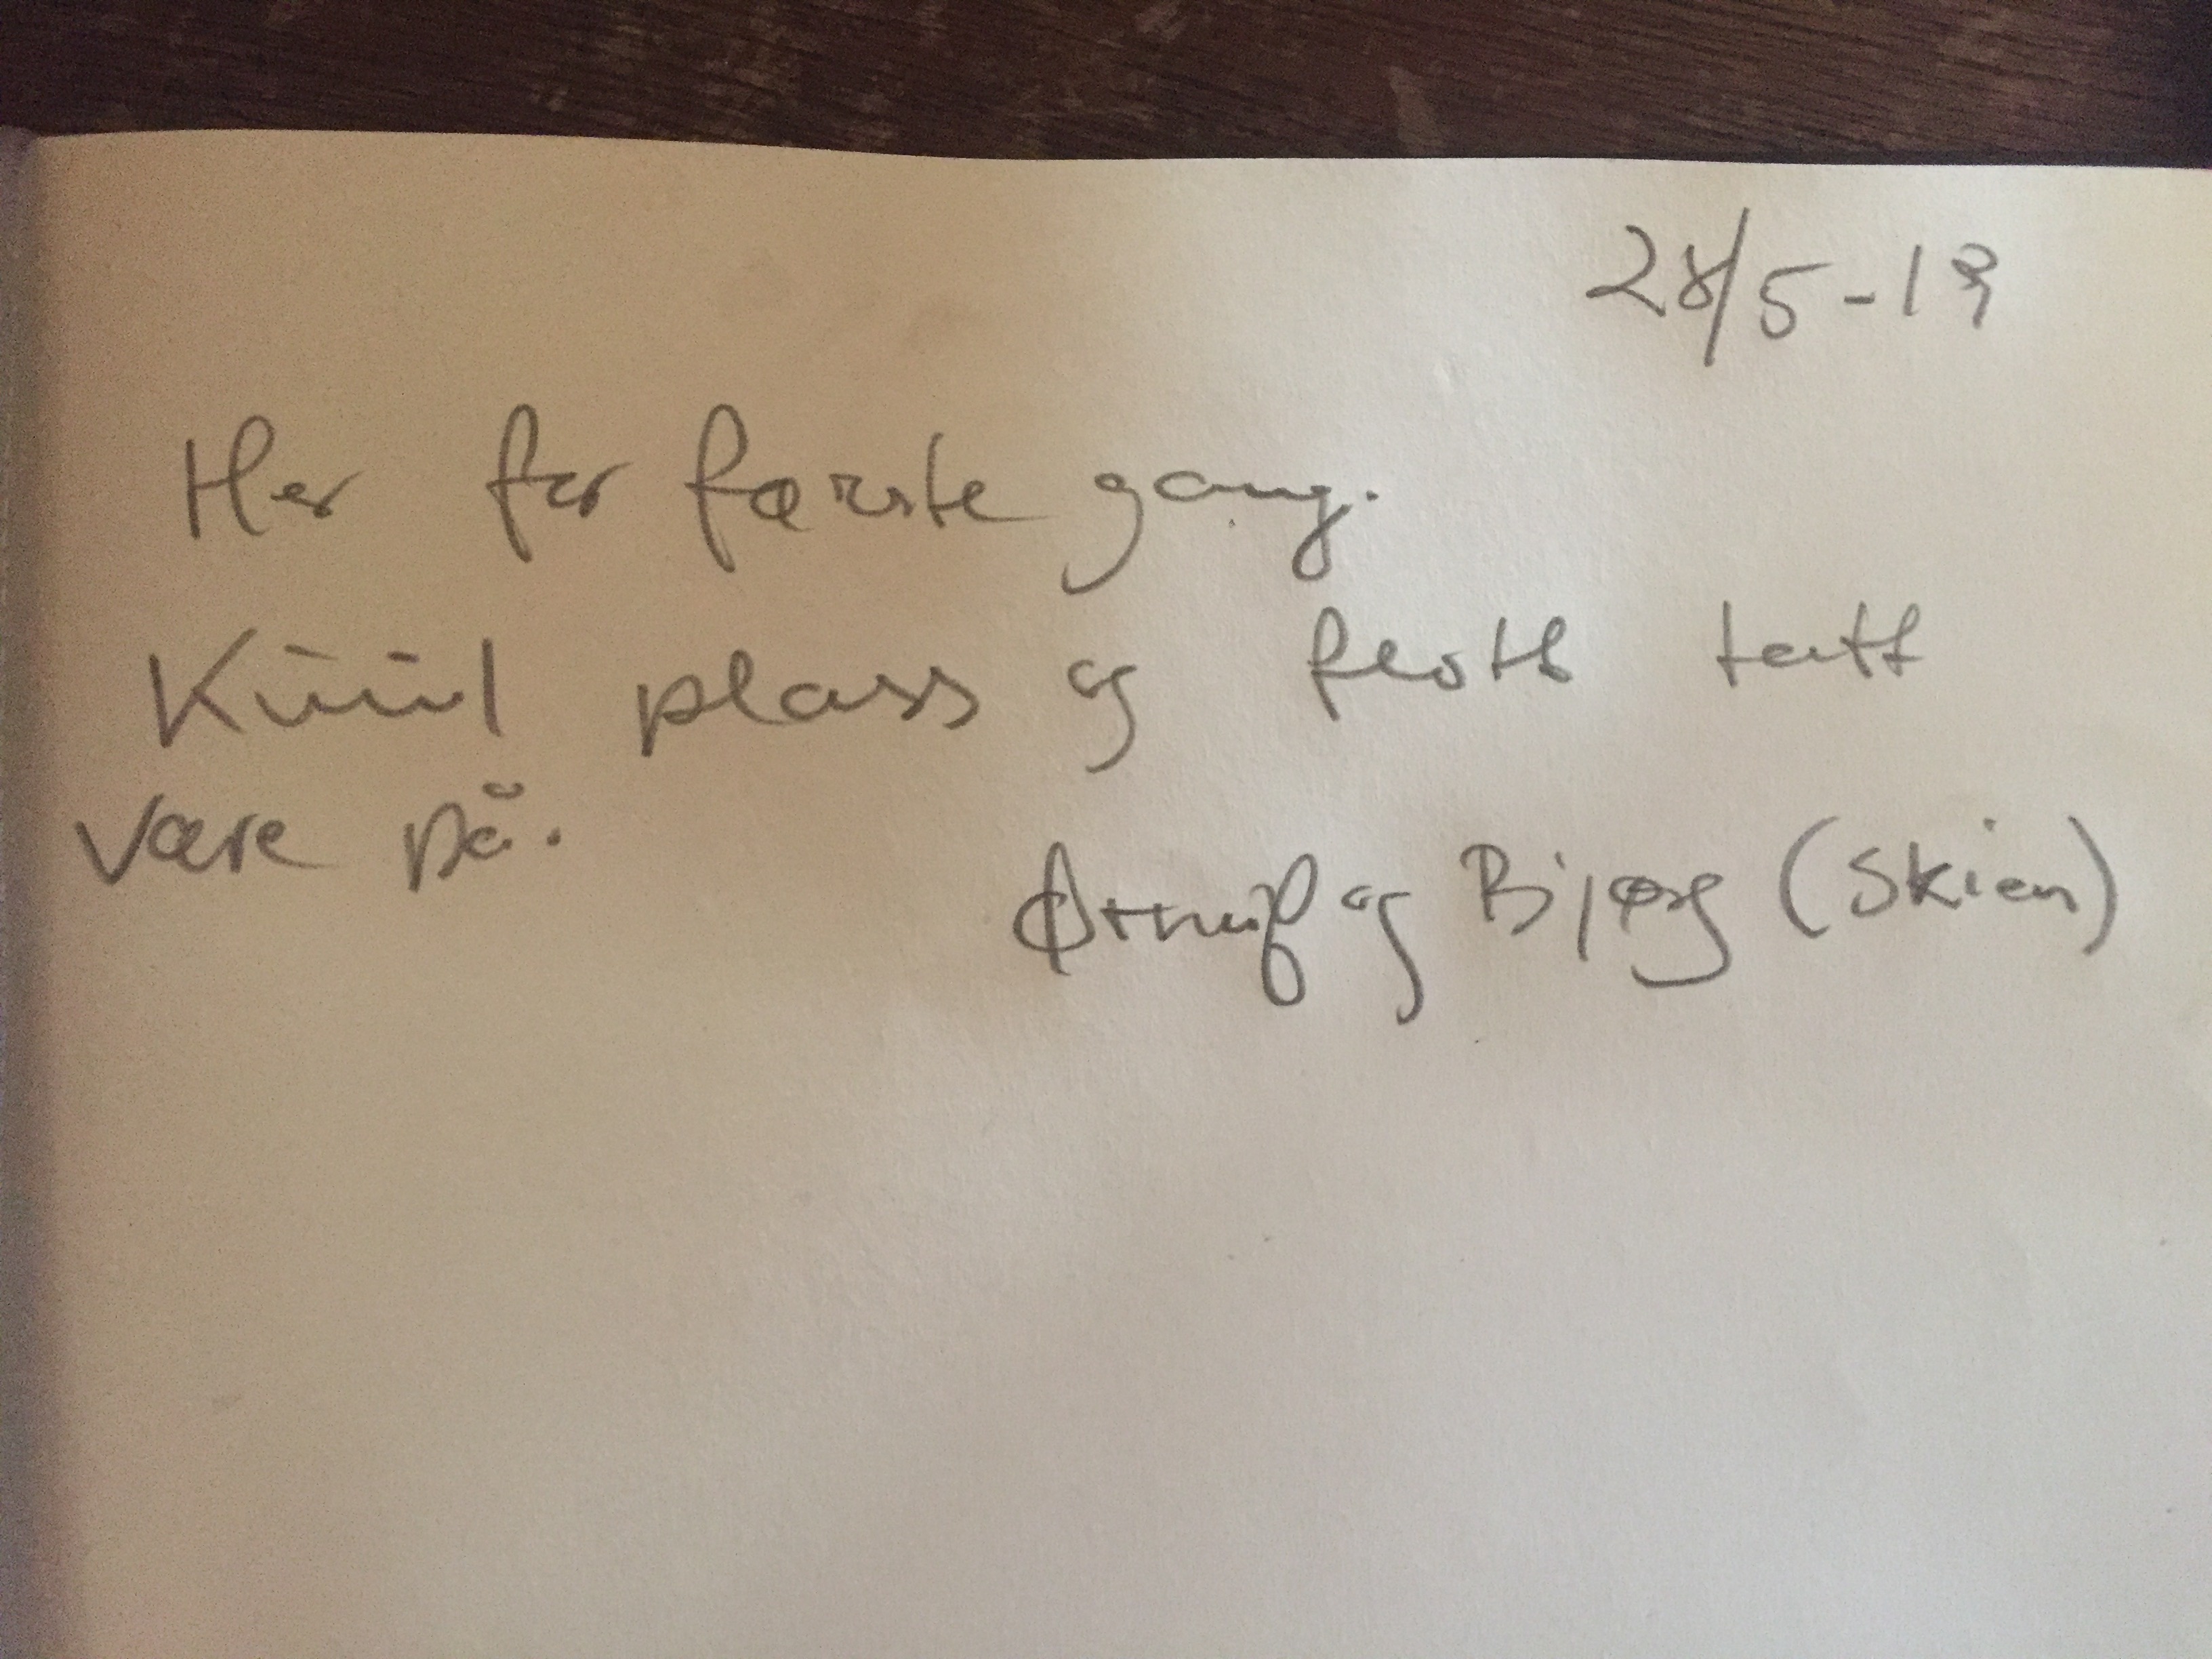 28/5-19
Her for første gang.
Kuul plass og flott tatt
vare på.
Ørnulf og Bjørg (Skien)